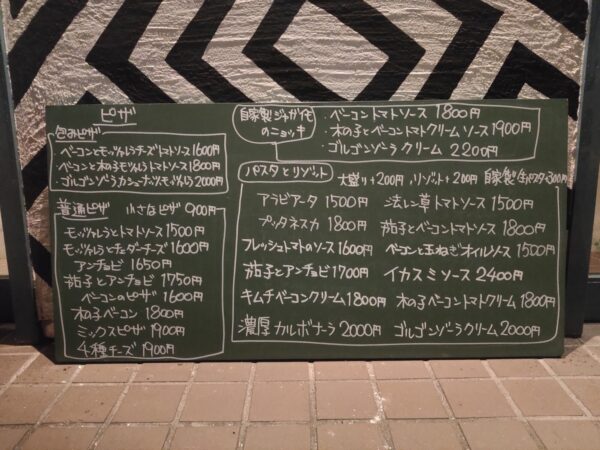 ピザ
包みピザ
ベーコンとモッツァレラチーズトマトソース1600円
ベーコンと木の子モッツァレラトマトソース1800円
ゴルゴンゾーラカシューナッツモッツァレラ2000円
普通ピザ 小さなピザ 900円
モッツァレラとトマトソース1500円
モッツァレラとチェダーチーズ1600円
アンチョビ 1650円
茄子とアンチョビ 1750円
ベーコンのピザ 1600円
木の子ベーコン 1800円
ミックスピザ 1900円
4種チーズ 1900円
自家製ジャガイモのニョッキ
・ベーコントマトソース 1800円
・木の子とベーコントマトクリームソース1900円
・ゴルゴンゾーラクリーム 2200円
パスタとリゾット 大盛り+200円 リゾット+200円 自家製生パスタ+300円
アラビアータ 1500円 法レン草トマトソース1500円
プッタネスカ 1800円 茄子とベーコントマトソース1800円
フレッシュトマトのソース1600円 ベーコンと玉ねぎオイルソース1500円
茄子とアンチョビ1700円 イカスミソース2400円
キムチベーコンクリーム1800円 木の子ベーコントマトクリーム1800円
濃厚カルボナーラ2000円 ゴルゴンゾーラクリーム2000円